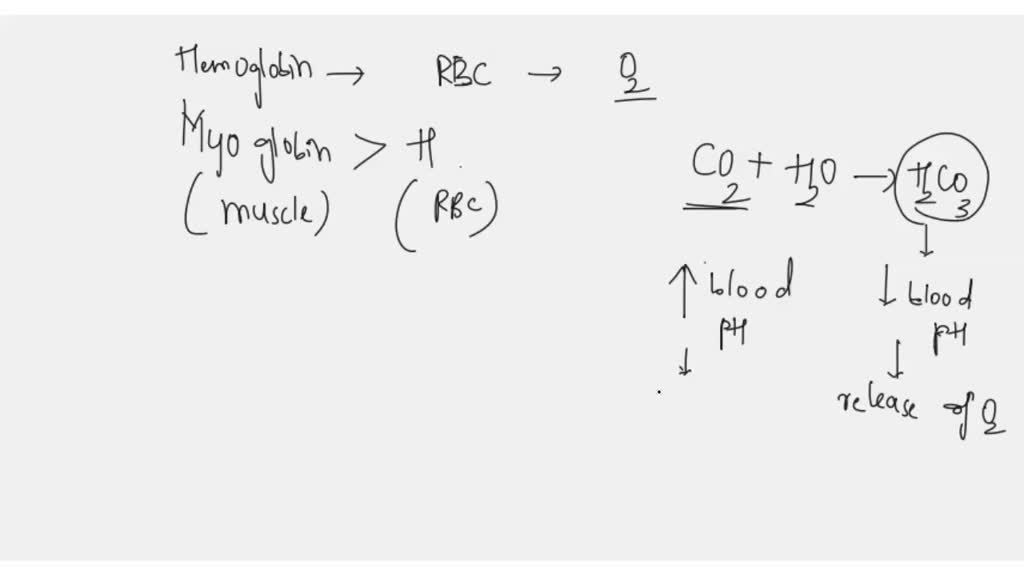 Hemoglobin → RBC → O2
Myoglobin > H
(muscle) (RBC)
CO2 + H2O → H2CO3
↓
↑ blood pH
↓
↓ blood pH
↓
release of O2